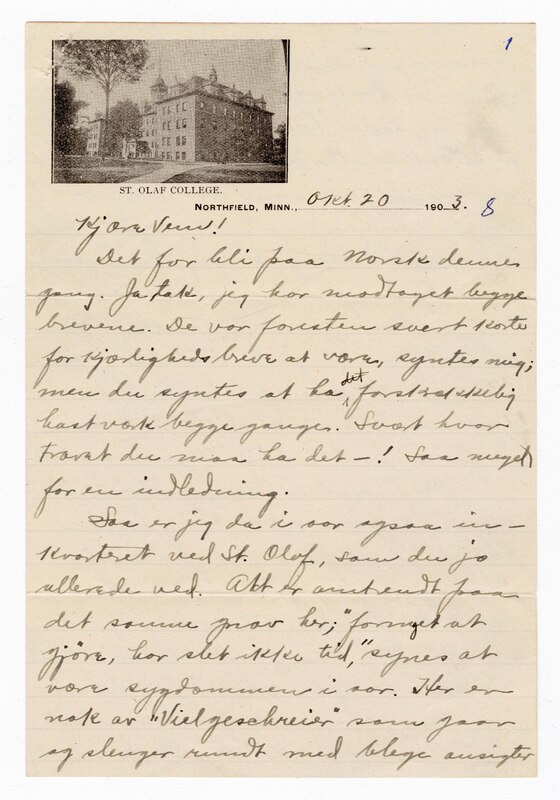 1
ST. OLAF COLLEGE.
NORTHFIELD, MINN., Okt. 20 1903. 8
Kjære Ven!
Det før bli paa Norsk denne
gang. Ja tak, jeg har modtaget begge
brevene. De var foresten svert korte
for Kjærligheds breve at være, syntes mig;
men du syntes at ha det forskrækkelig
hastværk begge ganger. Svært hvor
travat du maa ha det —! Saa meget
for en indledning.
Saa er jeg da i aar ogsaa in-
kvarteret ved St. Olaf, som du jo
allerede ved. Alt er omtrendt paa
det samme her; "formeget at
gjöre, har slet ikke tid," synes at
være sygdommen i aar. Her er
nok av "Vielgeschreier" som gaar
og slenger rundt med blege ansigter